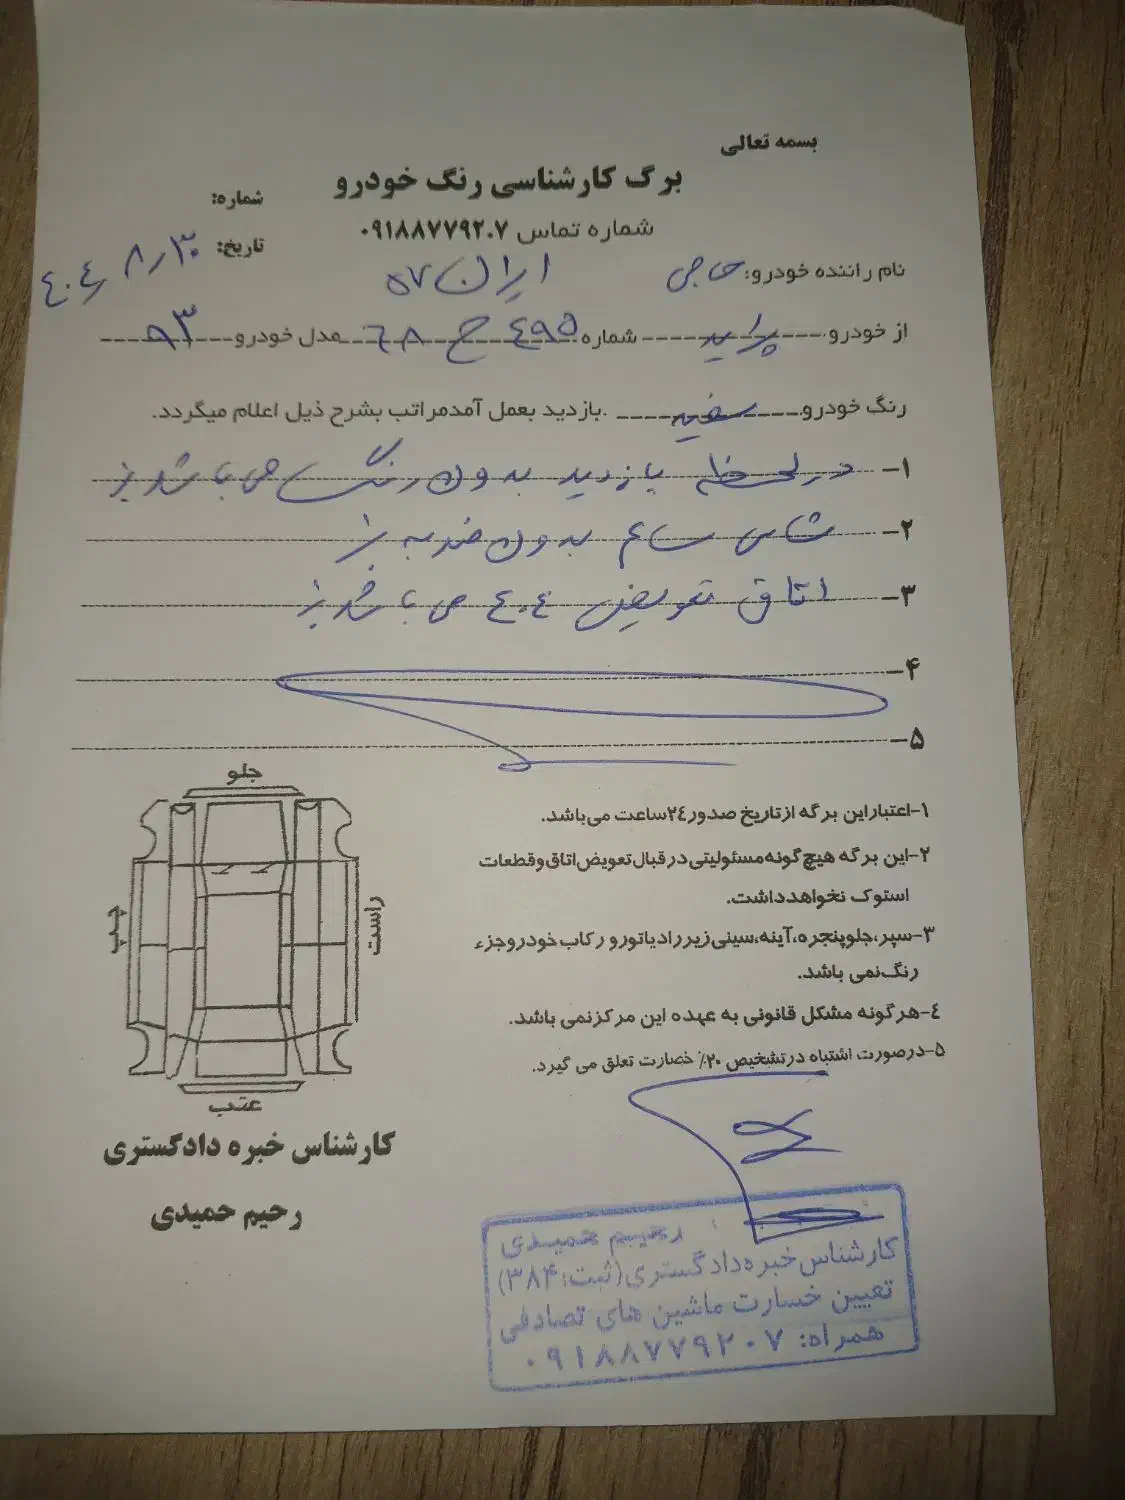 بسمه تعالی
برگ کارشناسی رنگ خودرو
شماره:
شماره تماس ۰۹۱۸۸۷۷۹۲۰۷
تاریخ: ۸٫۳۰ ٤۰٤
نام راننده خودرو: حاجی ایران ۵۷
از خودرو پراید شماره ٤۹۵ ح ٦۸ مدل خودرو ۹۳
رنگ خودرو سفید بازدید بعمل آمدمراتب بشرح ذیل اعلام میگردد.
۱- در لحظه بازدید بدون رنگ می باشد
۲- شاسی سالم بدون ضربه
۳- اتاق تعویض ٤۰٤ می باشد
۴-
۵-
۱-اعتباراین برگه ازتاریخ صدور٢٤ساعت می‌باشد.
۲-این برگه هیچ گونه مسئولیتی درقبال تعویض اتاق وقطعات
استوک نخواهدداشت.
۳-سپر،جلوپنجره،آینه،سینی زیررادیاتورو رکاب خودروجزء
رنگ نمی باشد.
٤-هرگونه مشکل قانونی به عهده این مرکزنمی باشد.
۵-درصورت اشتباه درتشخیص ۲۰٪ خصارت تعلق می گیرد.
جلو
راست
چپ
عقب
کارشناس خبره دادگستری
رحیم حمیدی
رحیم حمیدی
کارشناس خبره دادگستری (ثبت: ۳۸۴)
تعیین خسارت ماشین های تصادفی
همراه: ۰۹۱۸۸۷۷۹۲۰۷